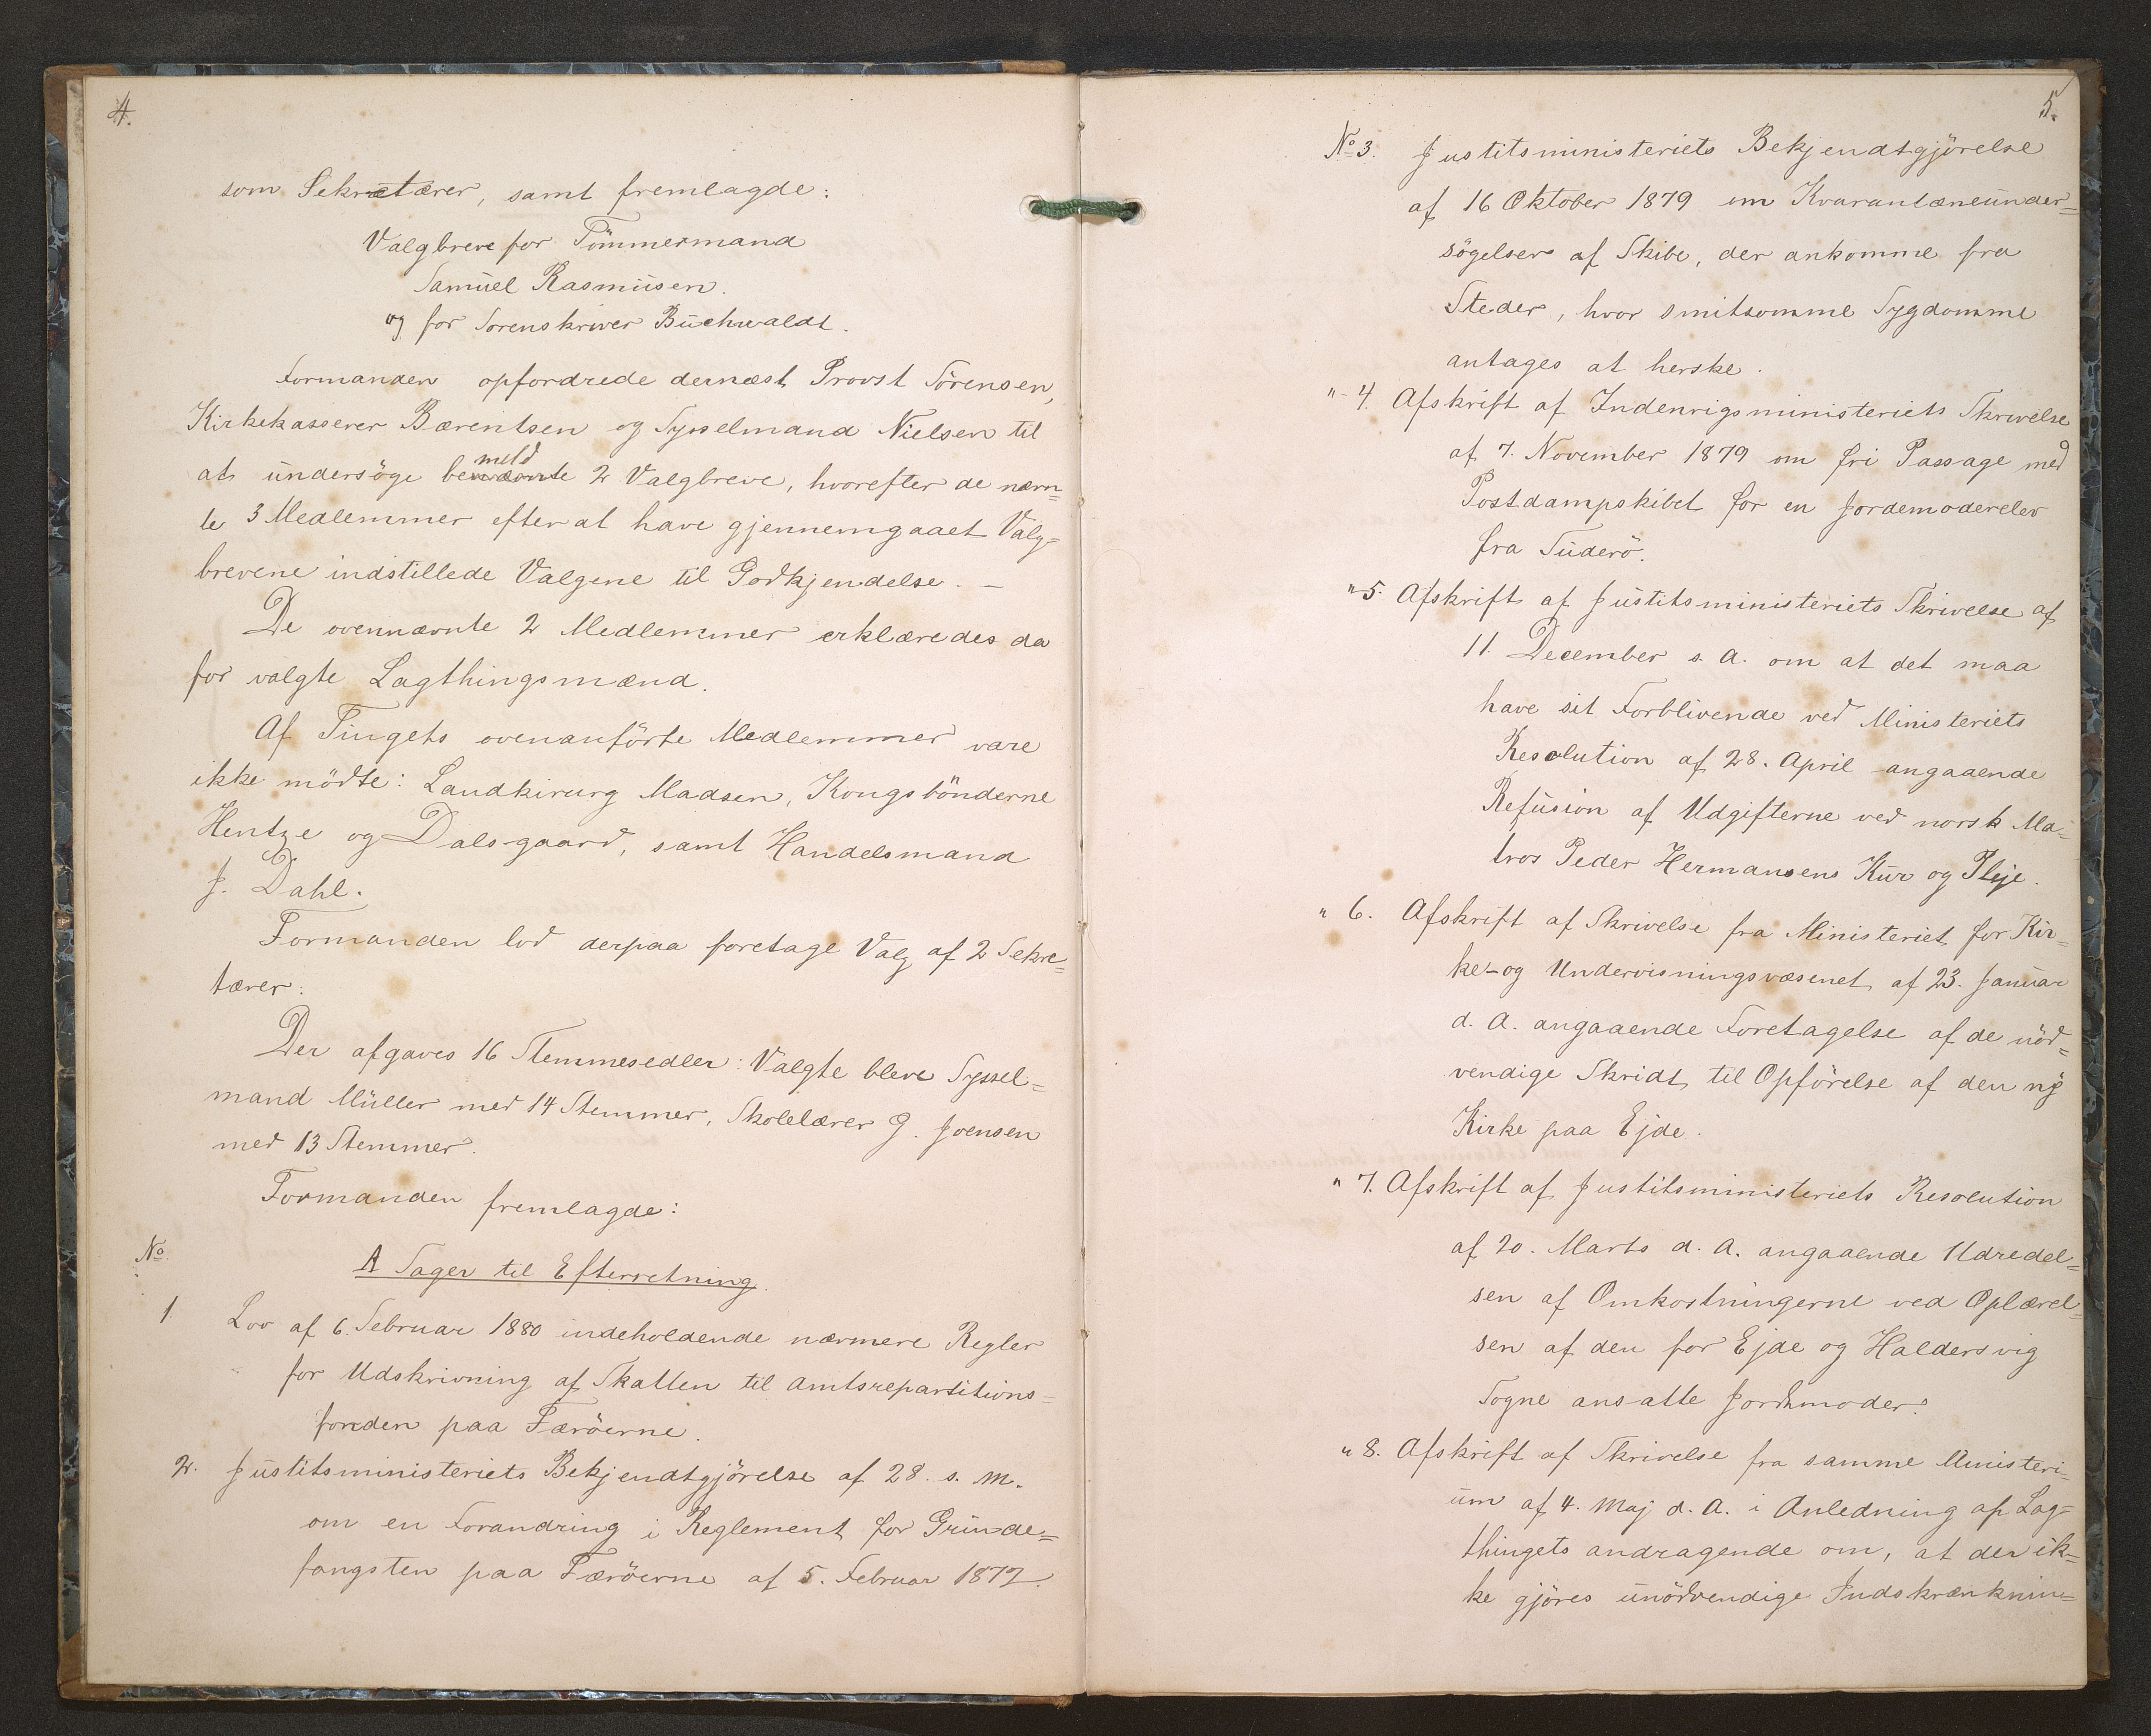 4.
som Sekretærer, samt fremlagde:
Valgbreve for Tömmermand
Samuel Rasmusen.
og for Sorenskriver Buchwaldt.
Formanden opfordrede dernæst Provst Sörensen,
Kirkekasserer Bærentsen og Sysselmand Nielsen til
meld
at undersöge benævnte 2 Valgbreve, hvorefter de nævn=
te 3 Medlemmer efter at have gjennemgaaet Valg=
brevene indstillede Valgene til Godkjendelse. —
De ovennævnte 2 Medlemmer erklæredes da
for valgte Lagthingsmænd.
Af Tingets ovenanförte Medlemmer vare
ikke mödte: Landkirurg Madsen, Kongsbönderne
Hentze og Dalsgaard, samt Handelsmand
J. Dahl.
Formanden lod derpaa foretage Valg af 2 Sekre=
tærer.
Der afgaves 16 Stemmesedler: Valgte bleve Syssel=
mand Müller med 14 Stemmer, Skolelærer G. Joensen
med 13 Stemmer.
Formanden fremlagde:
No.
A Sager til Efterretning.
1. Lov af 6. Februar 1880 indeholdende nærmere Regler
for Udskrivning af Skatten til Amtsrepartitions=
fonden paa Færöerne.
2. Justitsministeriets Bekjendtgjörelse af 28. s. M.
om en Forandring i Reglement for Grinde=
fangsten paa Færöerne af 5. Februar 1872.
5.
No 3. Justitsministeriets Bekjendtgjörelse
af 16 Oktober 1879 om Kvarantæneunder=
sögelser af Skibe, der ankomme fra
Steder, hvor smitsomme Sygdomme
antages at herske.
" 4. Afskrift af Indenrigsministeriets Skrivelse
af 7. November 1879 om fri Passage med
Postdampskibet for en Jordemoderelev
fra Suderö.
" 5. Afskrift af Justitsministeriets Skrivelse af
11. December s. A. om at det maa
have sit Forblivende ved Ministeriets
Resolution af 28. April angaaende
Refusion af Udgifterne ved norsk Ma=
tros Peder Hermansens Kur og Pleje.
" 6. Afskrift af Skrivelse fra Ministeriet for Kir=
ke- og Undervisningsvæsenet af 23. Januar
d. A. angaaende Foretagelse af de nöd=
vendige Skridt til Opförelse af den ny
Kirke paa Ejde.
" 7. Afskrift af Justitsministeriets Resolution
af 20. Marts d. A. angaaende Udredel=
sen af Omkostningerne ved Oplærel=
sen af den for Ejde og Haldersvig
Sogne ansatte Jordemoder.
" 8. Afskrift af Skrivelse fra samme Ministeri=
um af 4. Maj d. A. i Anledning af Lag=
thingets andragende om, at der ik=
ke gjöres unödvendige Indskrænknin=